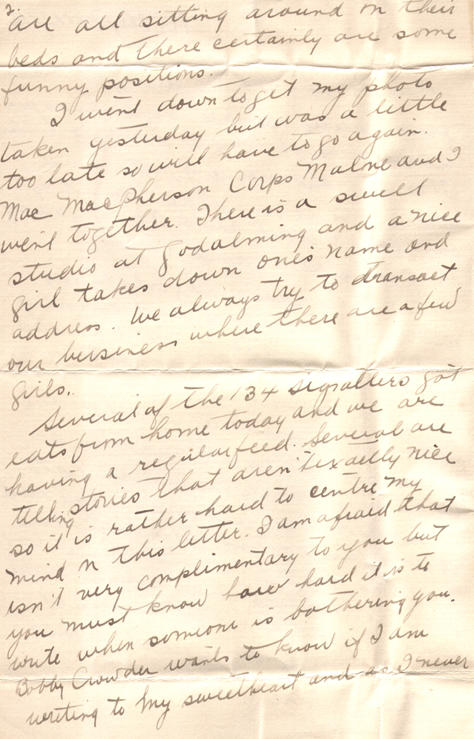 2.
are all sitting around on their
beds and there certainly are some
funny positions.
I went down to get my photo
taken yesterday but was a little
too late so will have to go again.
Mac Macpherson Corps Malone and I
went together. There is a swell
studio at Godalming and a nice
girl takes down one's name and
address. We always try to transact
our business where there are a few
girls.
Several of the 134 signallers got
eats from home today and we are
having a regular feed. Several are
telling stories that aren't exactly nice
so it is rather hard to centre my
mind on this letter. I am afraid that
isn't very complimentary to you but
you must know how hard it is to
write when someone is bothering you.
Bobby Crowder wants to know if I am
writing to my sweetheart and as I never